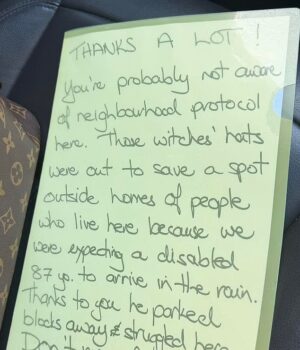 THANKS A LOT!
You're probably not aware
of neighbourhood protocol
here. Those witches' hats
were out to save a spot
outside homes of people
who live here because we
were expecting a disabled
87 yo. to arrive in the rain.
Thanks to you he parked
blocks away & struggled here
Don't